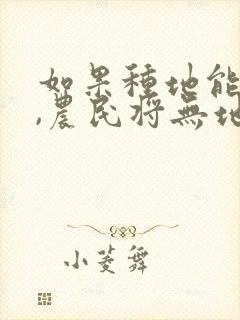 如果種地能
,農民將無地
小菱舞